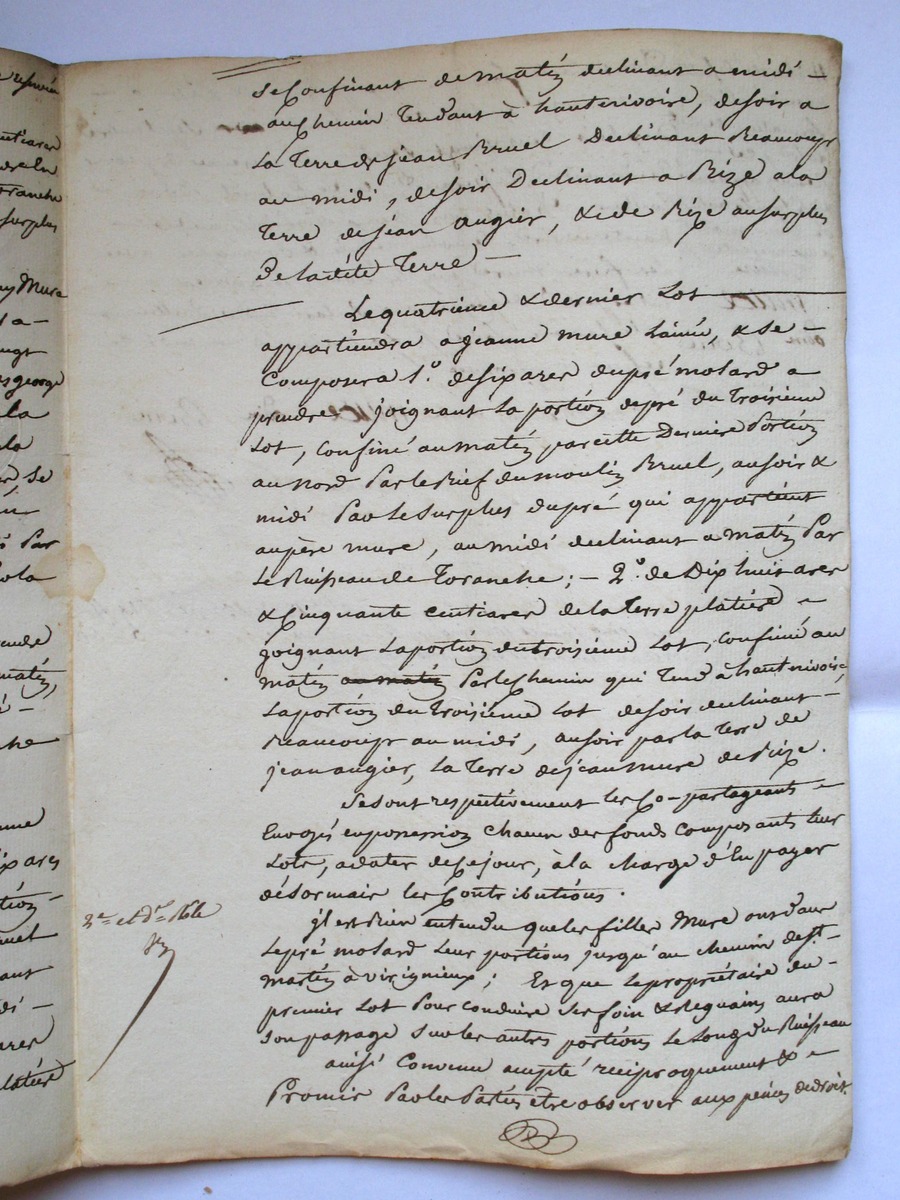 se Confinant de matin declinant a midi –
au Chemin Tendant à hauterivoire, de soir a
La Terre de jean Bruel Declinant Beaucoup
au midi, de soir Declinant a Bize a la
Terre de jean augier, & de Bize au surplus
De la dite Terre –
Le quatrieme & dernier Lot
appartiendra a jeanne mure L'ainée, & se –
Composera 1.° de six ares du pré molard a
prendre joignant La portion de pré du Troisieme
Lot, Confiné au matin par cette Derniere Portion
au nord Par le Bief du moulin Bruel, au soir &
midi Par Le Surplus du pré qui appartient
au père mure, au midi declinant a matin Par
Le Ruisseau de Toranche; – 2.° de Dix huit ares
& Cinquante centiares de la Terre platiere –
joignant La portion du troisieme Lot, Confiné au
matin au matin Par le Chemin qui Tend à hauterivoire,
La portion du Troisieme Lot de soir declinant –
Beaucoup au midi, au soir par la Terre de
jean augier, La Terre de jean mure de Bize.
Se sont respectivement les Co-partageants –
Envoyés en possession chacun des fonds composants leur
Lots, a dater de ce jour, à la charge d'En payer
désormais les Contributions.
jl est Bien entendu que les filles Mure ont dans
Le pré molard Leur portions jusqu'au chemin de St.
martin à virignieux; Et que Le propriétaire du –
premier Lot Pour conduire ses foin & Regains aura
son passage sur les autres portions Le Long du Ruisseau
ainsi Convenu accepté réciproquement & –
Promis Par les Parties être observer aux peines de droit.
2.e et d.er Rôle
uy Mure
george
la
Par
Toranche
surplus
matin,
six ares